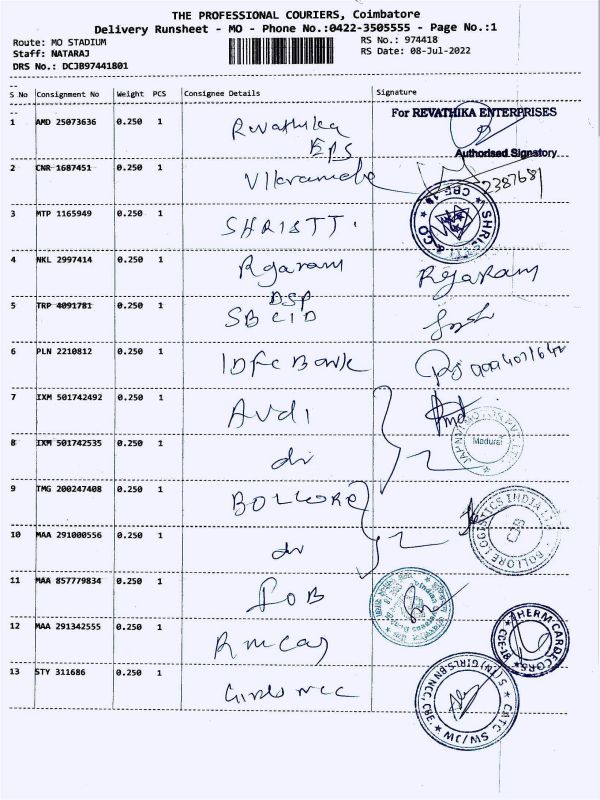 THE PROFESSIONAL COURIERS, Coimbatore
Delivery Runsheet - MO - Phone No.:0422-3505555 - Page No.:1
Route: MO STADIUM
Staff: NATARAJ
DRS No.: DCJB97441801
RS No.: 974418
RS Date: 08-Jul-2022
S No Consignment No Weight PCS Consignee Details Signature
For REVATHIKA ENTERPRISES
1 AMD 25073636 0.250 1 Revathika
EPS
Authorised Signatory
2 CNR 1687451 0.250 1
2387681
3 MTP 1165949 0.250 1 SHRISTTI
SHRISTTI & CO
4 NKL 2997414 0.250 1 Rgaram Rgaram
DSP
5 TRP 4091781 0.250 1 SBCID
6 PLN 2210812 0.250 1 IDFC Bank
7 IXM 501742492 0.250 1 AUDI
Madurai
8 IXM 501742535 0.250 1 do
9 TMG 200247408 0.250 1 BOLLORE
BOLLORE LOGISTICS INDIA
CJB
10 MAA 291000556 0.250 1 do
11 MAA 857779834 0.250 1 IOB
12 MAA 291342555 0.250 1
THERM CAR DECORS
CBE-18
13 STY 311686 0.250 1 Girls NCC
5 (TN) GIRLS BN NCC, CBE.
CATC
SW/JW